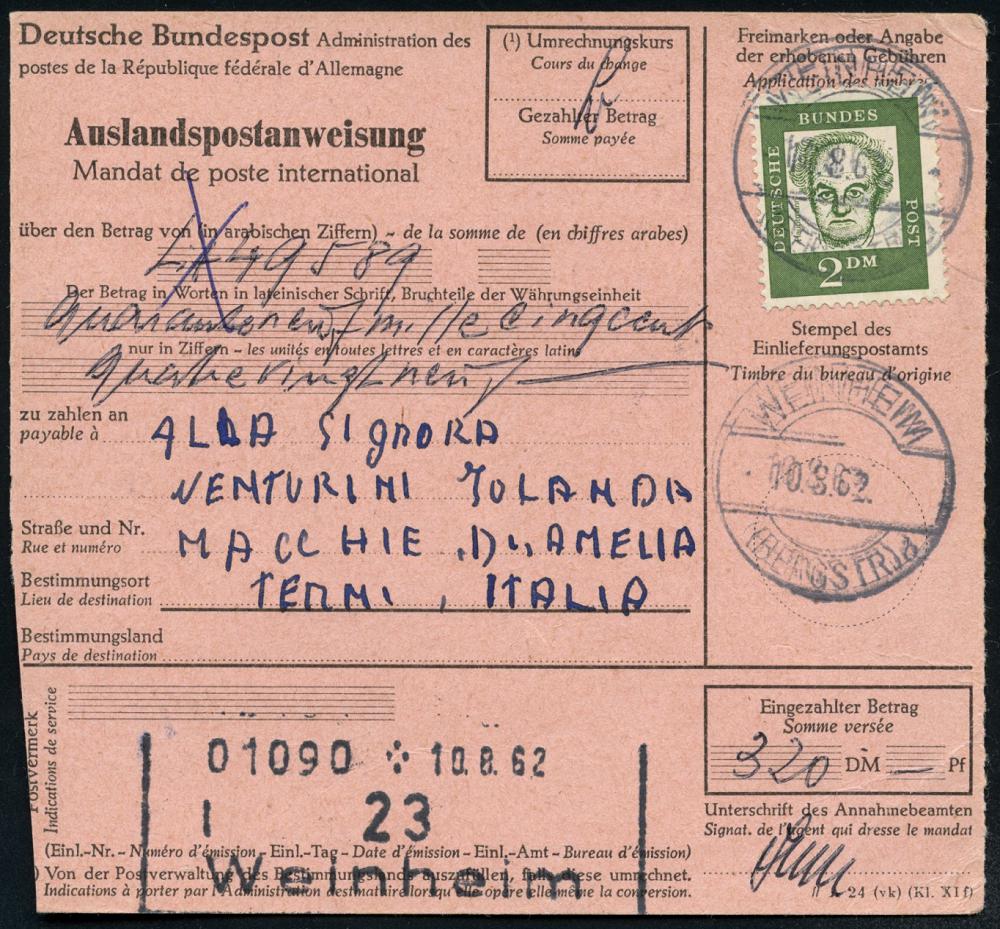 Deutsche Bundespost Administration des
postes de la République fédérale d'Allemagne
Auslandspostanweisung
Mandat de poste international
(¹) Umrechnungskurs
Cours du change
Gezahlter Betrag
Somme payée
Freimarken oder Angabe
der erhobenen Gebühren
Application des timbres
WEINHEIM
BUNDES
DEUTSCHE
POST
2 DM
über den Betrag von (in arabischen Ziffern) - de la somme de (en chiffres arabes)
49589
Der Betrag in Worten in lateinischer Schrift, Bruchteile der Währungseinheit
quaranteneuf mille cinqcent
nur in Ziffern - les unités en toutes lettres et en caractères latins
quatrevingtneuf
Stempel des
Einlieferungspostamts
Timbre du bureau d'origine
WEINHEIM
10.8.62
(BERGSTR)
zu zahlen an
payable à
ALLA SIGNORA
VENTURINI JOLANDA
Straße und Nr.
Rue et numéro
MACCHIE DI AMELIA
Bestimmungsort
Lieu de destination
TERNI, ITALIA
Bestimmungsland
Pays de destination
Postvermerk
Indications de service
01090 10.8.62
23
Weinheim
(Einl.-Nr. - Numéro d'émission - Einl.-Tag - Date d'émission - Einl.-Amt - Bureau d'émission)
) Von der Postverwaltung des Bestimmungslandes auszufüllen, falls diese umrechnet.
Indications à porter par l'Administration destinataire lorsqu'elle opère elle-même la conversion.
Eingezahlter Betrag
Somme versée
320 DM — Pf
Unterschrift des Annahmebeamten
Signat. de l'agent qui dresse le mandat
24 (vk) (Kl. XI f)